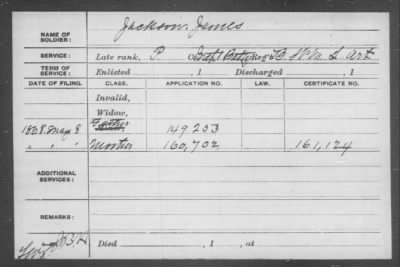 NAME OF SOLDIER: Jackson, James
SERVICE: Late rank, P. Reg't W Va L. Art
TERM OF SERVICE: Enlisted , 1 Discharged , 1
DATE OF FILING. CLASS. APPLICATION NO. LAW. CERTIFICATE NO.
Invalid,
Widow,
1868. May 8 149,253
" " " Mother 160,702 161,124
ADDITIONAL SERVICES:
REMARKS:
Died , 1 , at